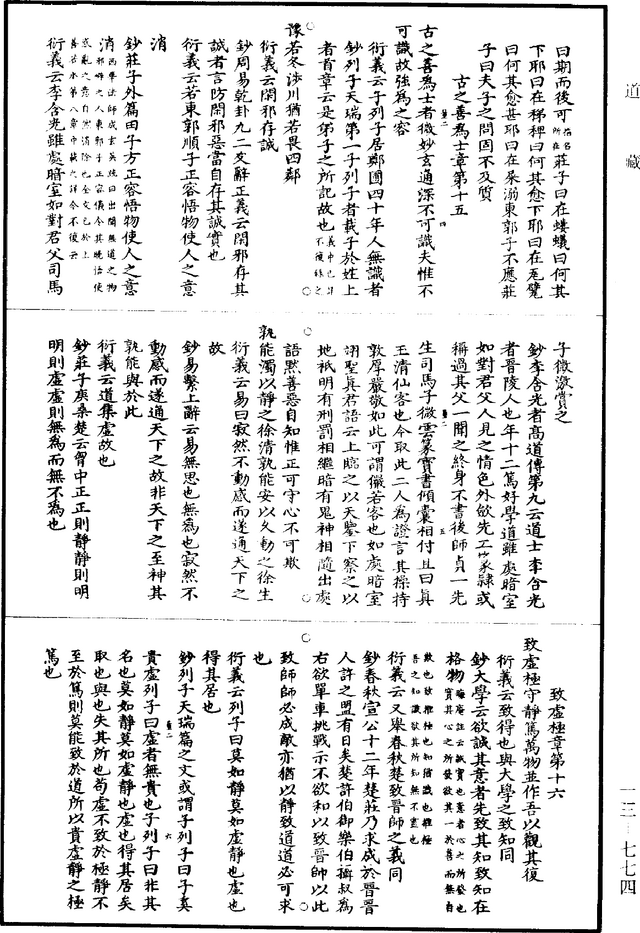 道藏
曰期而後可莊子曰在螻蟻曰何其
下耶曰在稊稗曰何其愈下耶曰在瓦甓
曰何其愈甚耶曰在屎溺東郭子不應莊
子曰夫子之問固不及質
古之善為士章第十五
古之善為士者微妙玄通深不可識夫惟不
可識故強為之容
衍義云子列子居鄭圃四十年人無識者
鈔列子天瑞第一子列子者載子於姓上
者首章云是弟子之所記故也
豫若冬涉川猶若畏四鄰
衍義云閑邪存誠
鈔周易乾卦九二爻辭正義云閑邪存其
誠者言防閑邪惡當自存其誠實也
衍義云若東郭順子正容悟物使人之意
消
鈔莊子外篇田子方正容悟物使人之意
消
衍義云李含光雖處暗室如對君父司馬
子微激賞之
鈔李含光者高道傳第九云道士李含光
者晉陵人也年十二篤好學道雖處暗室
如對君父人見之情色外斂先工篆隸或
稱過其父一聞之終身不書後師貞一先
生司馬子微雲篆寶書傾囊相付且曰真
玉清仙客也今取此二人為證言其操持
敦厚嚴敬如此可謂儼若客也如處暗室
翊聖真君語云上臨之以天鑒下察之以
地祇明有刑罰相繼暗有鬼神相隨出處
語默善惡自知惟正可守心不可欺
孰能濁以靜之徐清孰能安以久動之徐生
衍義云易曰寂然不動感而遂通天下之
故
鈔易繫上辭云易無思也無為也寂然不
動感而遂通天下之故非天下之至神其
孰能與於此
衍義云道集虛故也
鈔莊子庚桑楚云胷中正正則靜靜則明
明則虛虛則無為而無不為也
致虛極章第十六
致虛極守靜篤萬物並作吾以觀其復
衍義云致得也與大學之致知同
鈔大學云欲誠其意者先致其知致知在
格物
衍義云又舉春秋楚致晉師之義同
鈔春秋宣公十二年楚莊乃求成於晉晉
人許之盟有日矣楚許伯御樂伯攝叔為
右欲單車挑戰示不欲和以致晉師以此
致師師必成敵亦猶以靜致道道必可求
也
衍義云列子曰莫如靜莫如虛靜也虛也
得其居也
鈔列子天瑞篇之文或謂子列子曰子奚
貴虛列子曰虛者無貴也子列子曰非其
名也莫如靜莫如虛靜也虛也得其居矣
取也與也失其所也苟虛不致於極靜不
至於篤則莫能致於道所以貴虛靜之極
篤也
一三-七七四